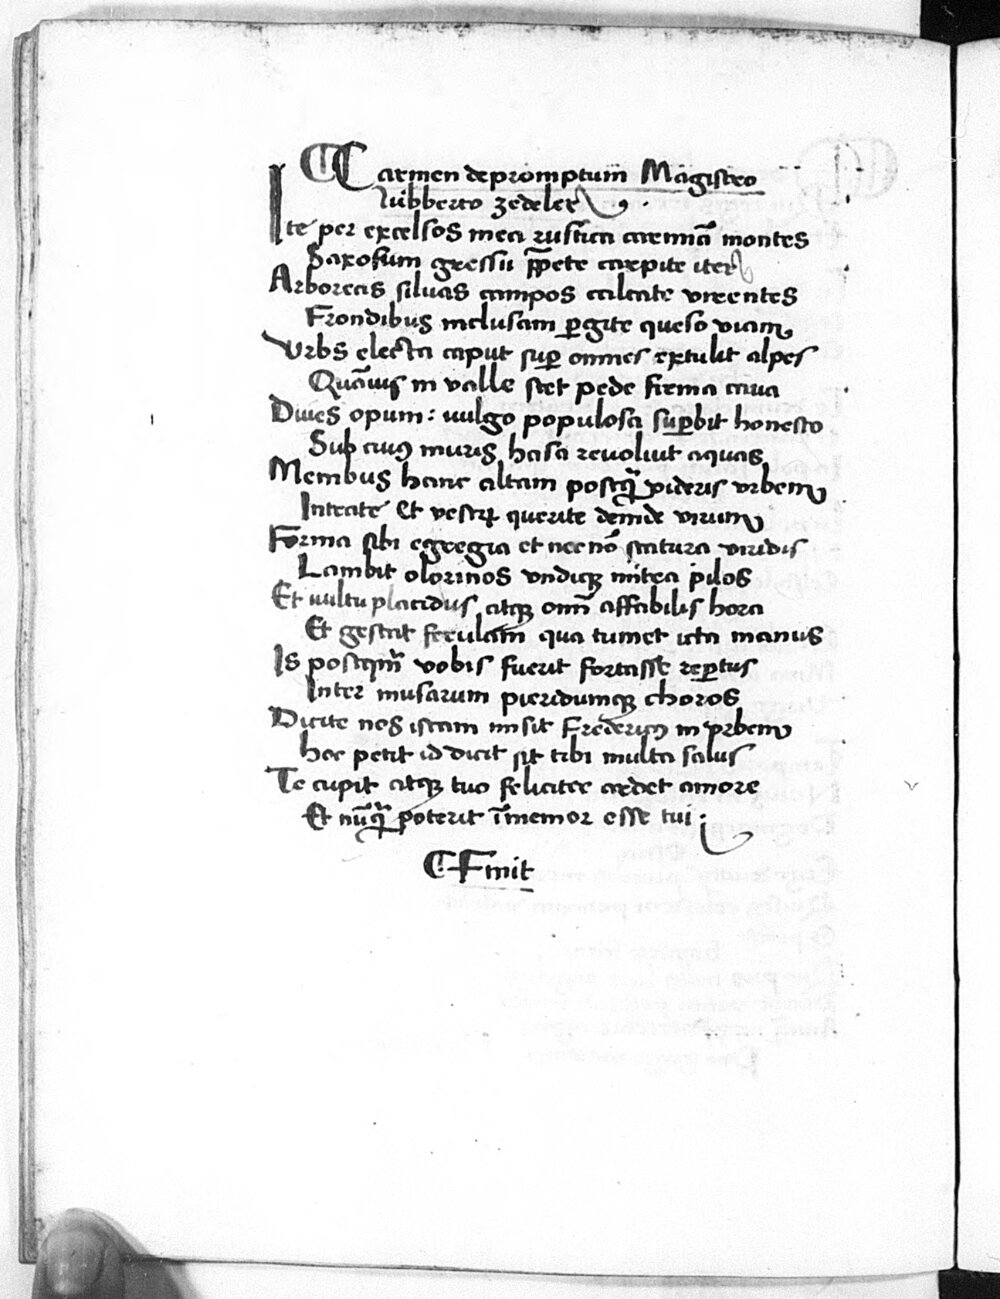 Carmen depromptum̄ Magistro
Lúbberto zedeler
Ite per excelsos mea rustica carmīa montes
Saxosum gressu p̄pete carpite iter
Arboreas siluas campos calcate virentes
Frondibus inclusam ꝑgite queso viam
Vrbs electa caput suꝑ omnes extulit alpes
Quāuis in valle stet pede firma caua
Diues opum: uulgo populosa suꝑbit honesto
Sub cuiꝰ muris hasa reuoluit aquas
Menibus hanc altam postq̄ videris vrbem
Intrate et vestrū querite deinde virum
Forma sibi egregia et nec nō statura viridis
Lambit olorinos vndiqꝫ mitra pilos
Et uultu placidus atqꝫ om̄i affabilis hora
Et gestat ferulam qua tumet icta manus
Is postqm̄ vobis fuerit fortasse reꝑtus
Inter musarum pieridumqꝫ choros
Dicite nos istam misit Fredericꝰ in vrbem
hoc petit id dicit sit tibi multa salus
Te cupit atqꝫ tuo feliciter ardet amore
Et nūq̄ poterit īmemor esse tui
Finit